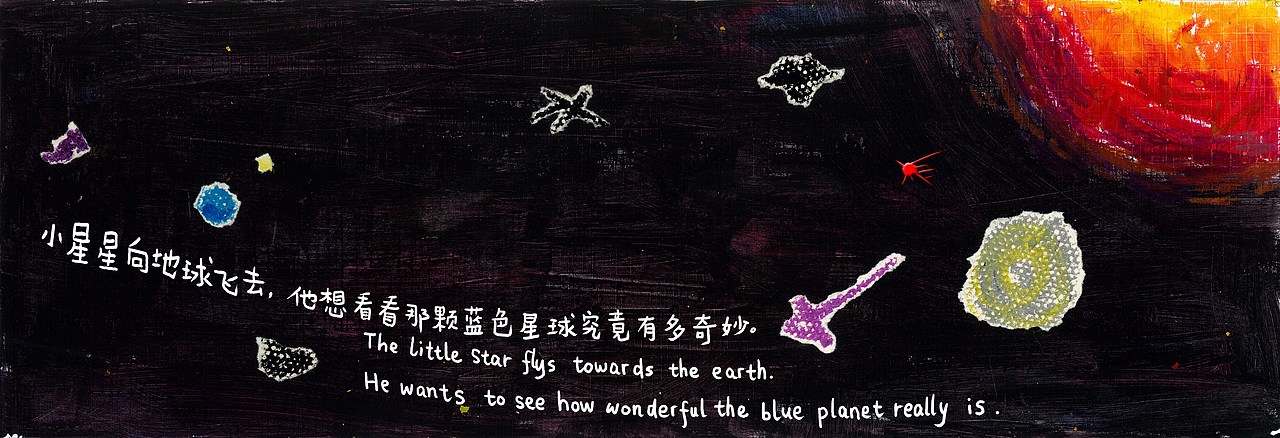 小星星向地球飞去，他想看看那颗蓝色星球究竟有多奇妙。
The little star flys towards the earth.
He wants to see how wonderful the blue planet really is.